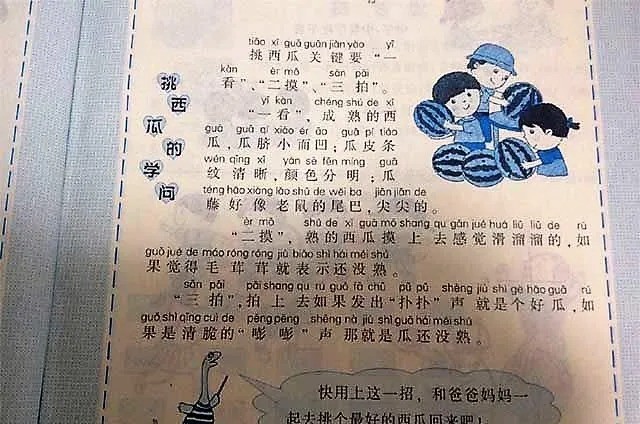 挑西瓜的学问
tiāo xī guā guān jiàn yào yī
挑西瓜关键要“一
kàn èr mō sān pāi
看”、“二摸”、“三拍”。
yī kàn chéng shú de xī
“一看”,成熟的西
guā guā qí xiǎo ér āo guā pí tiáo
瓜,瓜脐小而凹;瓜皮条
wén qīng xī yán sè fēn míng guā
纹清晰,颜色分明;瓜
téng hǎo xiàng lǎo shǔ de wěi ba jiān jiān de
藤好像老鼠的尾巴,尖尖的。
èr mō shú de xī guā mō shang qu gǎn jué huá liū liū de rú
“二摸”,熟的西瓜摸上去感觉滑溜溜的,如
guǒ jué de máo róng róng jiù biǎo shì hái méi shú
果觉得毛茸茸就表示还没熟。
sān pāi pāi shang qu rú guǒ fā chū pū pū shēng jiù shì gè hǎo guā rú
“三拍”,拍上去如果发出“扑扑”声就是个好瓜,如
guǒ shì qīng cuì de pēng pēng shēng nà jiù shì guā hái méi shú
果是清脆的“嘭嘭”声那就是瓜还没熟。
快用上这一招,和爸爸妈妈一
起去挑个最好的西瓜回来吧!